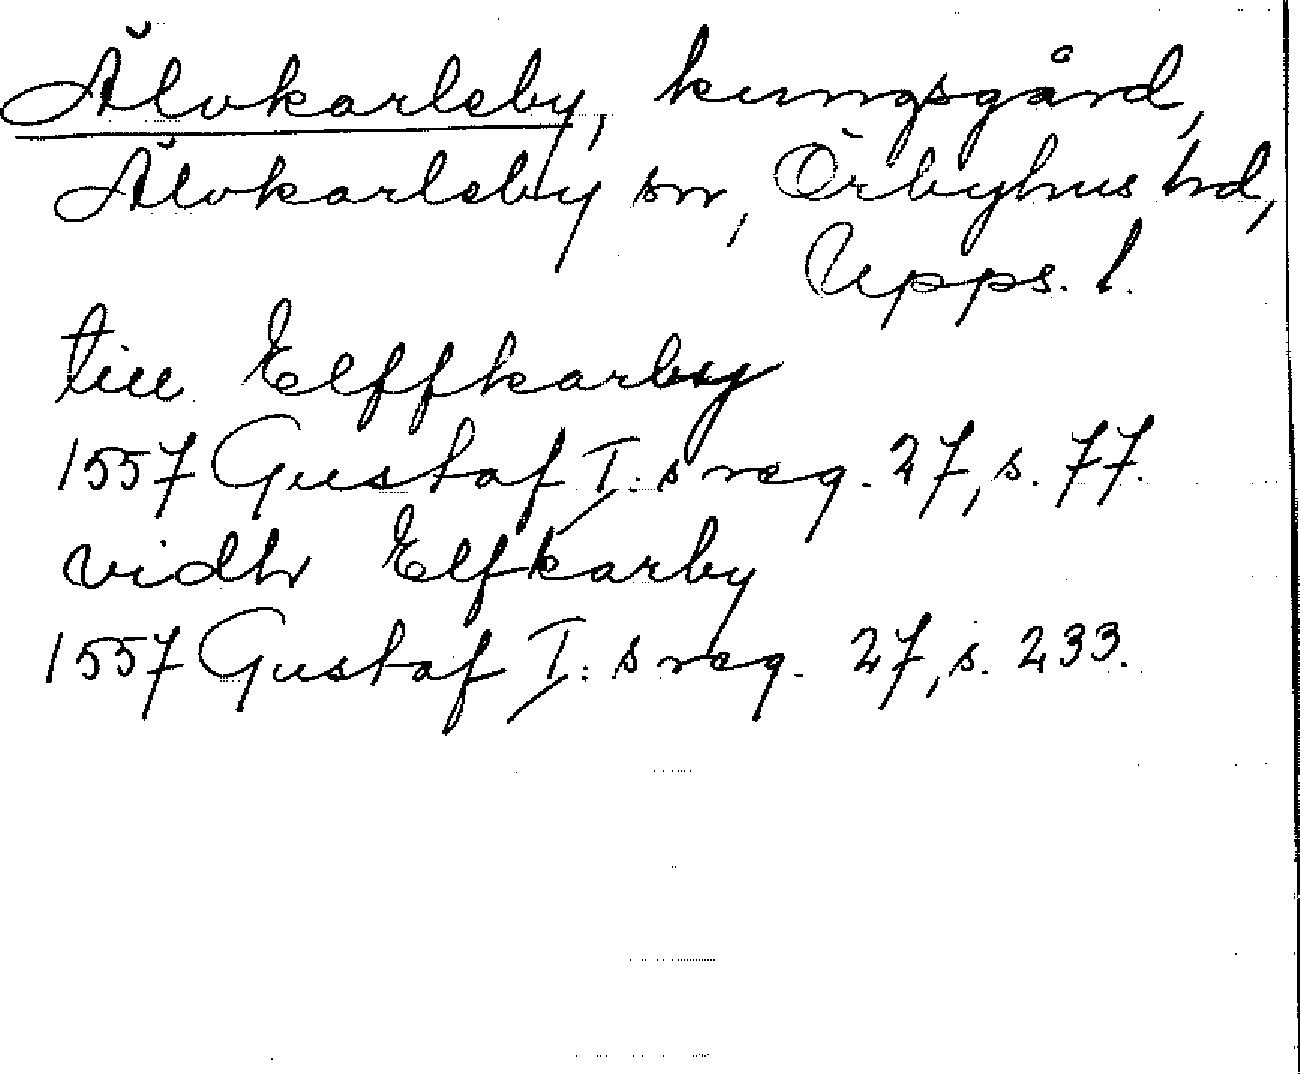 Älvkarleby, kungsgård,
Älvkarleby sn, Örbyhus hd,
Upps. l.
till Elffkarby
1557 Gustaf I:s reg. 27, s. 77.
vidh Elfkarby
1557 Gustaf I:s reg. 27, s. 233.